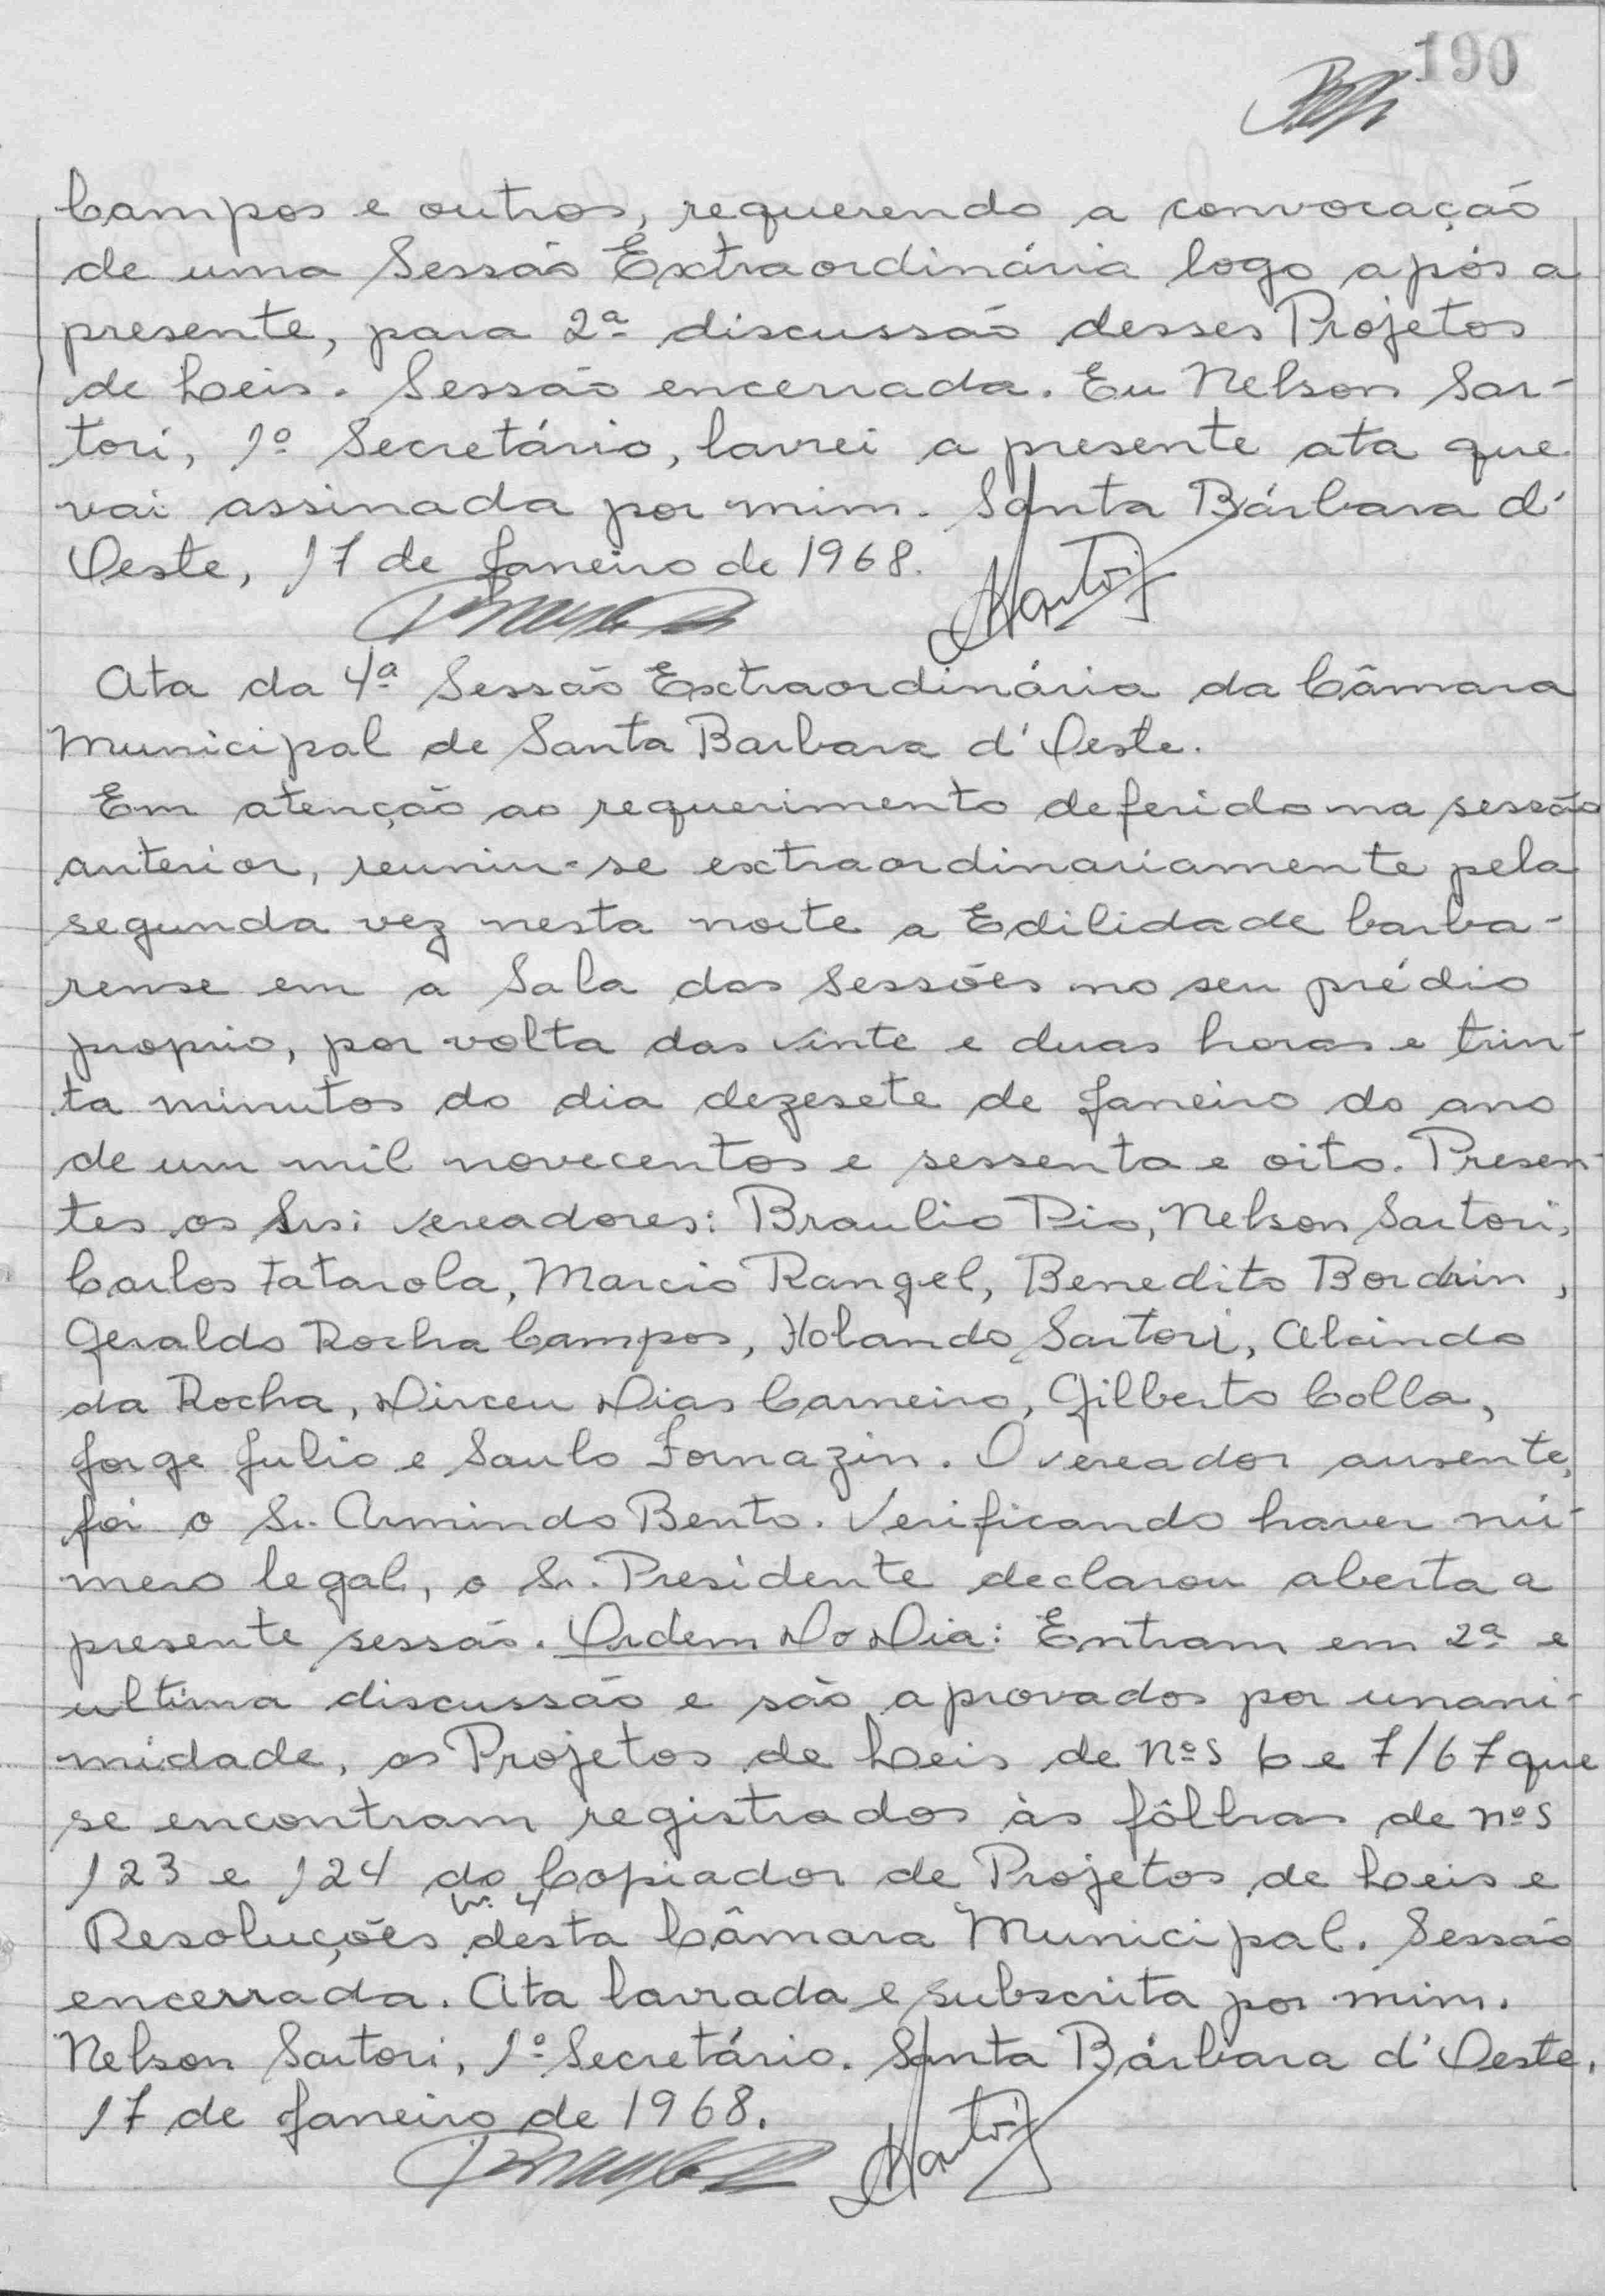 190
Campos e outros, requerendo a convocação
de uma Sessão Extraordinária logo após a
presente, para 2ª discussão desses Projetos
de Leis. Sessão encerrada. Eu Nelson Sar-
tori, 1º Secretário, lavrei a presente ata que
vai assinada por mim. Santa Bárbara d'
Oeste, 17 de Janeiro de 1968.
Ata da 4ª Sessão Extraordinária da Câmara
Municipal de Santa Barbara d'Oeste.
Em atenção ao requerimento deferido na sessão
anterior, reuniu-se extraordinariamente pela
segunda vez nesta noite a Edilidade barba-
rense em a Sala das Sessões no seu prédio
proprio, por volta das vinte e duas horas e trin-
ta minutos do dia dezesete de Janeiro do ano
de um mil novecentos e sessenta e oito. Presen-
tes os Srs: vereadores: Braulio Pio, Nelson Sartori,
Carlos Fatarola, Marcio Rangel, Benedito Bordin,
Geraldo Rocha Campos, Holando Sartori, Alcindo
da Rocha, Dirceu Dias Carneiro, Gilberto Colla,
Jorge Julio e Saulo Fornazin. O vereador ausente,
foi o Sr. Armindo Bento. Verificando haver nú-
mero legal, o Sr. Presidente declarou aberta a
presente sessão. Ordem Do Dia: Entram em 2ª e
ultima discussão e são aprovados por unani-
midade, os Projetos de Leis de nºs 6 e 7/67 que
se encontram registrados às fôlhas de nºs
123 e 124 do Copiador de Projetos de Leis e
Resoluções nº 4 desta Câmara Municipal. Sessão
encerrada. Ata lavrada e subscrita por mim.
Nelson Sartori, 1º Secretário. Santa Bárbara d'Oeste,
17 de Janeiro de 1968.